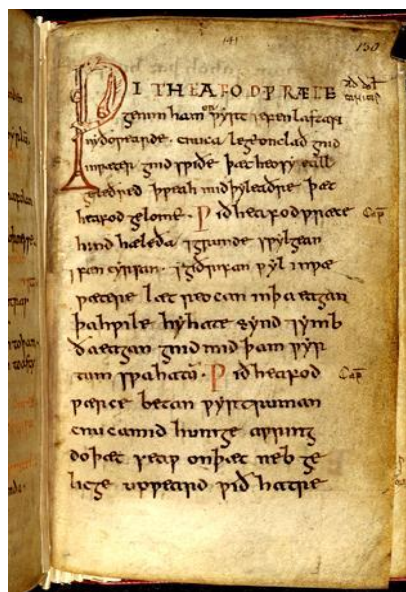 141
130
ǷIÐ HEAFODǷRÆCE
genim ham ƿyrt ⁊ efen lastan
nyðoƿearde · cnuca lege on clað gnid
in ƿæter gnid sƿiðe þæt heo sy eall
geleðred þƿeah mid þy leaðre þæt
heafod gelome · Ƿið heafodƿræce
hind hæleða ⁊ grunde sƿylgean
⁊ fæn cyrsan · ⁊ giðrifan ƿyl in ƿæ
ƿætere læt reocan in þa eagan
þa hƿile hy hate synd ⁊ ymb
ða eagan gnid mid þam ƿyr
tum sƿa hatū · Ƿið heafod
ƿærce betan ƿyrtruman
cnuca mid hunige aƿring
do þæt seaƿ on þæt neb ge
licge uppeard ƿið hatre